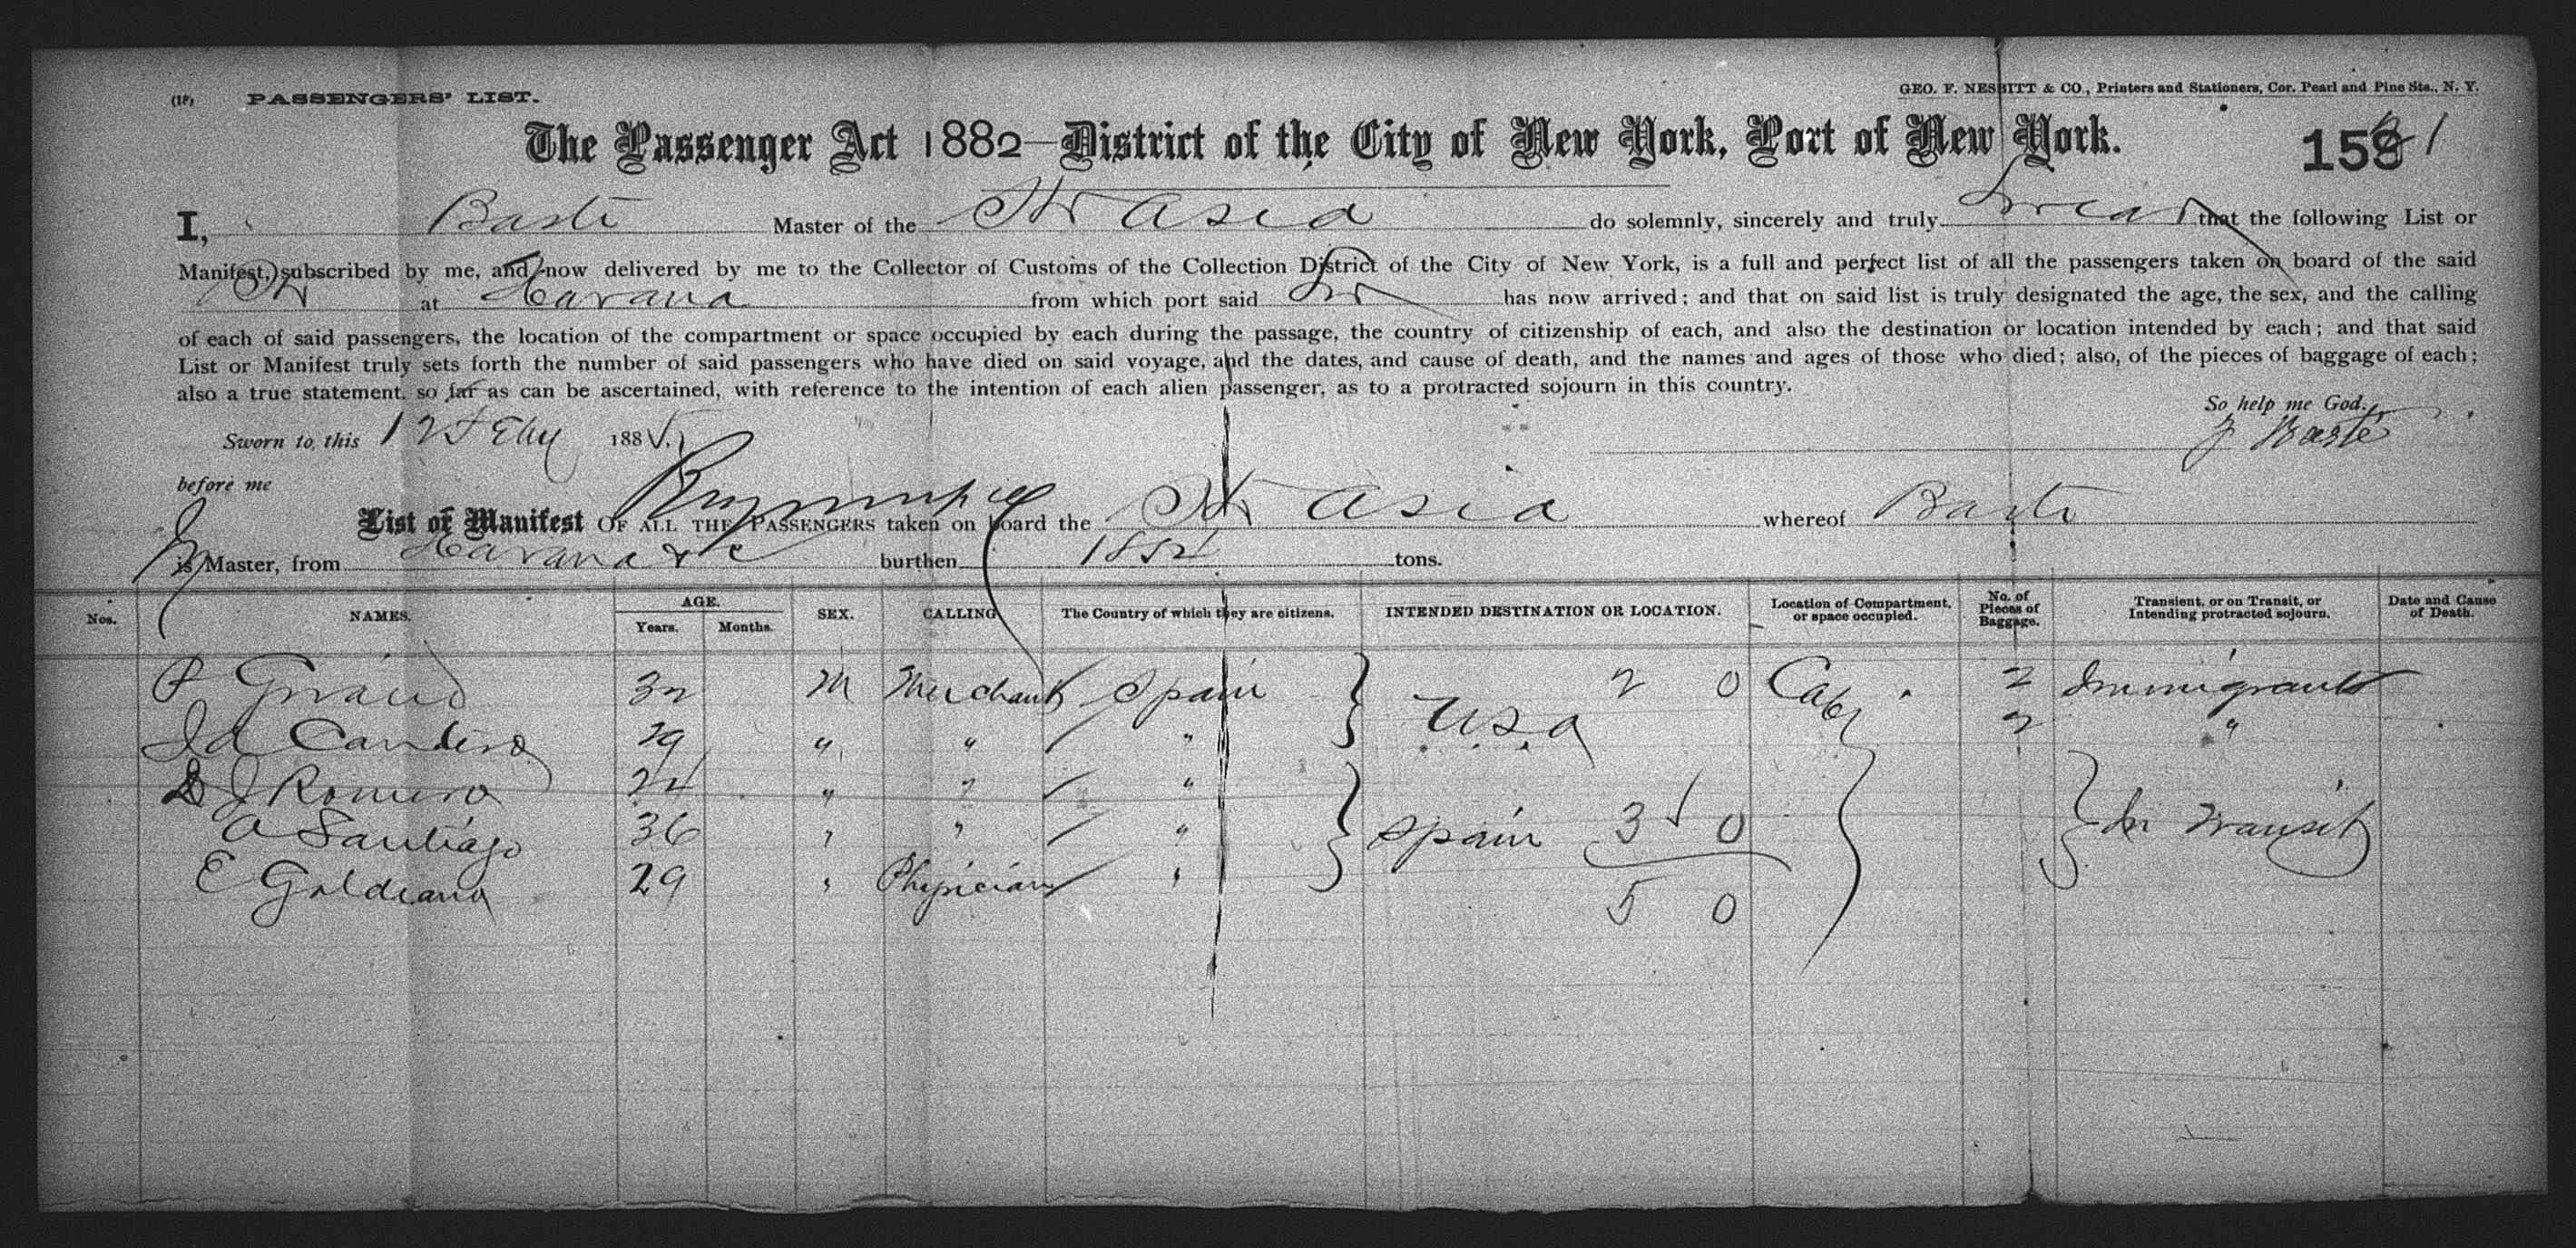 (18) PASSENGERS' LIST.
GEO. F. NESBITT & CO., Printers and Stationers, Cor. Pearl and Pine Sts., N. Y.
The Passenger Act 1882—District of the City of New York, Port of New York.
I, Baste Master of the Str Asia do solemnly, sincerely and truly swear that the following List or
Manifest, subscribed by me, and now delivered by me to the Collector of Customs of the Collection District of the City of New York, is a full and perfect list of all the passengers taken on board of the said
Str at Havana from which port said Str has now arrived; and that on said list is truly designated the age, the sex, and the calling
of each of said passengers, the location of the compartment or space occupied by each during the passage, the country of citizenship of each, and also the destination or location intended by each; and that said
List or Manifest truly sets forth the number of said passengers who have died on said voyage, and the dates, and cause of death, and the names and ages of those who died; also, of the pieces of baggage of each;
also a true statement, so far as can be ascertained, with reference to the intention of each alien passenger, as to a protracted sojourn in this country.
So help me God.
Sworn to, this 12 Feby 1885. J Baste
before me
List or Manifest OF ALL THE PASSENGERS taken on board the Str Asia whereof Baste
is Master, from Havana &c burthen tons.
Nos. NAMES. AGE. Years. Months. SEX. CALLING The Country of which they are citizens. INTENDED DESTINATION OR LOCATION. Location of Compartment, or space occupied. No. of Pieces of Baggage. Transient, or on Transit, or Intending protracted sojourn. Date and Cause of Death.
P Giraud 32 M Merchant / Spain } 2 0 Cab 2 Immigrants
J A Candero 29 " " / " USA 2 "
D J Romero 24 " " / "
A Santiago 36 " " / " } Spain 3 0 } In Transit
E Goldiana 29 " Physician / " 5 0